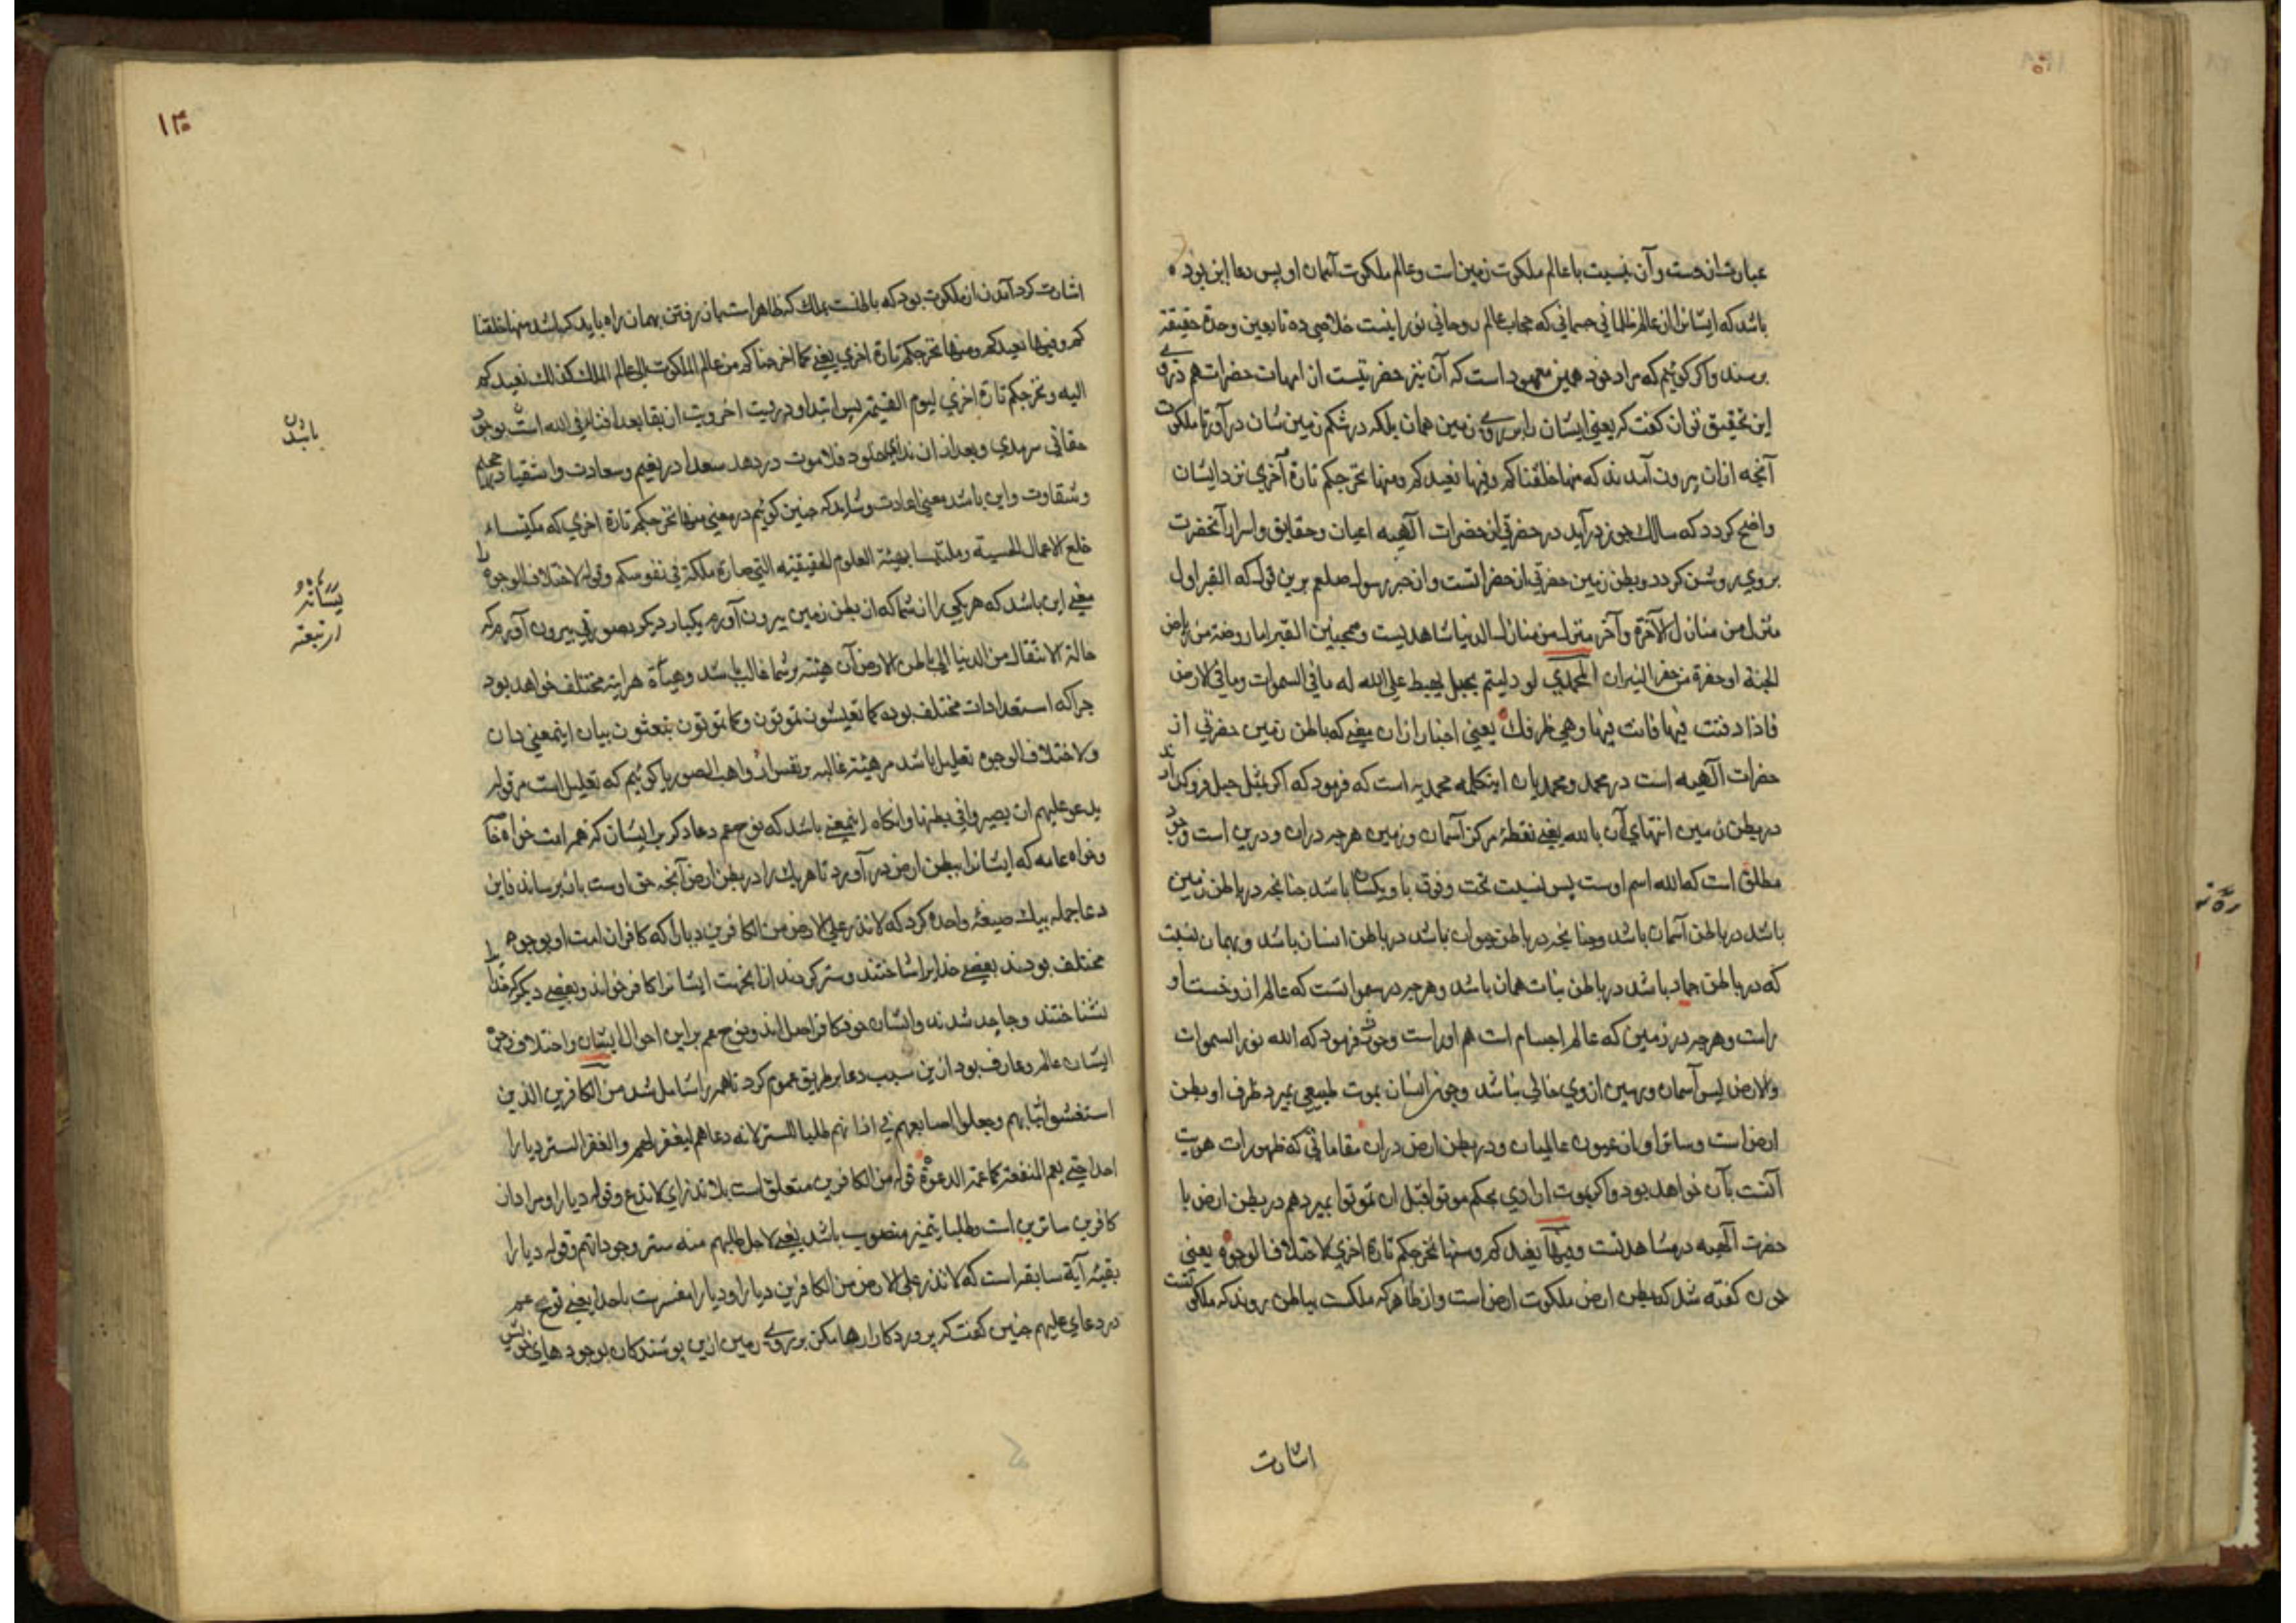 عبارت از دست وآن بنسبت با عالم ملکوت زمین است وعالم ملکوت آسمان او پس دعا این بود
باشد که ایشانرا از عالم ظلمانی جسمانی که حجاب عالم روحانی نورانیست خلاصی ده تا بعین وحدة حقیقة
برسند واکر کوئیم که مراد خود همین معهود است که آن نیز حضرتیست از امهات حضرات هم در وی
این تحقیق توان کفت که یعنی ایشان را بر روی زمین همان بلکه در شکم زمین شان درآور تا ملکوت
آنجه ازان بیرون آمدند که منها خلقناکم وفیها نعیدکم ومنها نخرجکم تارة آخری نزد ایشان
واضح کردد که سالك چون درآید در حضرتی از حضرات آلهیه اعیان وحقایق واسرار آنحضرت
بروی روشن کردد وبطن زمین حضرتی از حضراتست وازخبر رسول صلعم برین قوله که القبر اول
منزل من منازل الآخرة وآخر منزل من منازل الدنیا شاهدیست وهمجنین القبر اما روضة من ریاض
الجنة او حفرة من حفر النیران المحمدی لو دلیتم بحبل لهبط علی الله له ما فی السموات وما فی الارض
فاذا دفنت فیها فانت فیها وهی ظرفك یعنی اخبار ازان معنی که باطن زمین حضرتی از
حضرات آلهیه است در محمد ومحمدیان اینکلمه محمدیه است که فرمود که اکر بمثل حبل فروکذارند
در بطن زمین انتهای آن بالله یعنی نقطهٔ مرکز آسمان وزمین هرجه دران ودرین است وجود
مطلق است که الله اسم اوست پس نسبت تحت وفوق با او یکسان باشد جنانجه در باطن زمین
باشد در باطن آسمان باشد وجنانجه در باطن حیوان باشد در باطن انسان باشد وبهمان نسبت
که در باطن جماد باشد در باطن نبات همان باشد وهرجه در سمواتست که عالم ارواحست او
راست وهرجه در زمین که عالم اجسام است هم اوراست وجون فرمود که الله نور السموات
والارض پس آسمان وزمین ازوی خالی نباشد وجون انسان بموت طبیعی بمیرد ظرف او بطن
ارض است وساتر او از عیون عالمیان ودر بطن ارض دران مقاماتی که ظهورات هویت
آنست بآن خواهد بود واکر بموت ارادی بحکم موتوا قبل ان تموتوا بمیرد هم در بطن ارض با
حضرت آلهیه در مشاهدتست وفیها نعیدکم ومنها نخرجکم تارة اخری لاختلاف الوجوه یعنی
جون کفته شد که بطن ارض ملکوت ارض است واز ظاهر که ملکست بباطن روند که ملکوتست
اشارت
۱۳۰
اشارت کرد آمدن از ملکوت بود که باطنست بملك که ظاهر است باز رفتن بهمان راه باید که باشد منها خلقنا
کم وفیها نعیدکم ومنها نخرجکم تارة اخری یعنی کما اخرجناکم من عالم الملکوت الی عالم الملك کذلك نعیدکم
الیه ونخرجکم تارة اخری لیوم القیمة پس ابتداء ودر نیت اخرویت ان بقا بعد الفناء فی الله است بوجود
حقانی سرمدی وبعد ازان ندای خلود فلا موت دردهد سعدا در نعیم وسعادت واشقیا در جحیم
باشدن
وشقاوت واین باشد معنی اعادت وشاید که جنین کوئیم در معنی منها نخرجکم تارة اخری که مکتساء
خلع الاعمال الحسیة وملتبسا بهیئة العلوم الحقیقیه التی صارة ملکة فی نفوسکم وقوله لاختلاف الوجوه را
معنی این باشد که هریکی را از شما که از بطن زمین بیرون آورم یکبار دیکر بصورتی بیرون آورم که
حالة الانتقال من الدنیا الی باطن الارض آن هیئت بر شما غالب باشد وهیأة هر اینه مختلف خواهد بود
جراکه استعدادات مختلف بوده کما تعیشون تموتون وکما تموتون تبعثون بیان اینمعنی دان
ولاختلاف الوجوه تعلیل باشد مر هیئة غالبه بر نفس از واهب الصور یا کوئیم که تعلیل است مر قوله
یدعو علیهم ان یصیروا فی بطنها وانکاه اینمعنی باشد که نوح عم دعا کرد بر ایشان که هر امت خواه خاص
وخواه عامه که ایشانرا ببطن ارض درآورد تا هریك را در بطن ارض آنجه حق اوست بانبرساند واین
دعا جمله بیك صیغهٔ واحده کرد که لا تذر علی الارض من الکافرین دیارا که کافران امت او بوجوه
مختلف بودند بعضی خدایرا شناختند وستر کردند ازانجهت ایشانرا کافر خواند وبعضی دیکر که خدا را
نشناختند وجاحد شدند وایشان خود کافر اصل اند ونوح عم براین احوال ایشان واختلاف وجوه
ایشان عالم وعارف بود ازین سبب دعا بر طریق عموم کرد تا همه را شامل شد من الکافرین الذین
استغشوا ثیابهم وجعلوا اصابعهم فی اذانهم طلبا للستر لانه دعاهم لیغفر لهم والغفر الستر دیارا
احدا حتی یعم المنفعة کما عمت الدعوة قوله من الکافرین متعلق است بلا تذر ای لا تدع وقوله دیارا ومراد ازان
کافرین ساترین است وطلبا بتمیز منصوب باشد یعنی لاجل طلبهم منه ستر وجوداتهم وقوله دیارا
بقیهٔ آیة سابقه است که لا تذر علی الارض من الکافرین دیارا ودیارا مفسرست باحدا یعنی نوح عم
در دعای علیهم جنین کفت که پروردکارا رها مکن بر روی زمین ازین پوشندکان بوجودهای خویش